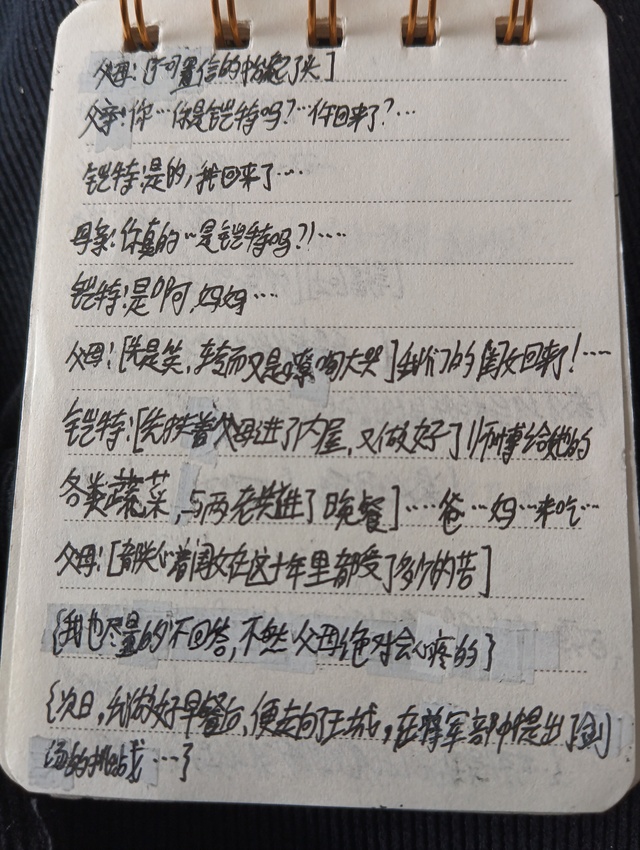 父母:[不可置信的抬起了头]
父亲:你…你是铠特吗?…你回来了?…
铠特:是的,我回来了…
母亲:你真的…是铠特吗?!…
铠特:是啊,妈妈…
父母:[先是笑,转而又是嚎啕大哭]我们的闺女回来了!…
铠特:[先扶着父母进了内屋,又做好了师事给她的
各类蔬菜,与两老共进了晚餐]…爸…妈…来吃…
父母:[都关心着闺女在这十年里都受了多少的苦]
{我也尽量的不回答,不然父母绝对会心疼的}
{次日,我做好早餐后,便走向了王城,在将军部中提出了剑
汤的挑战…}